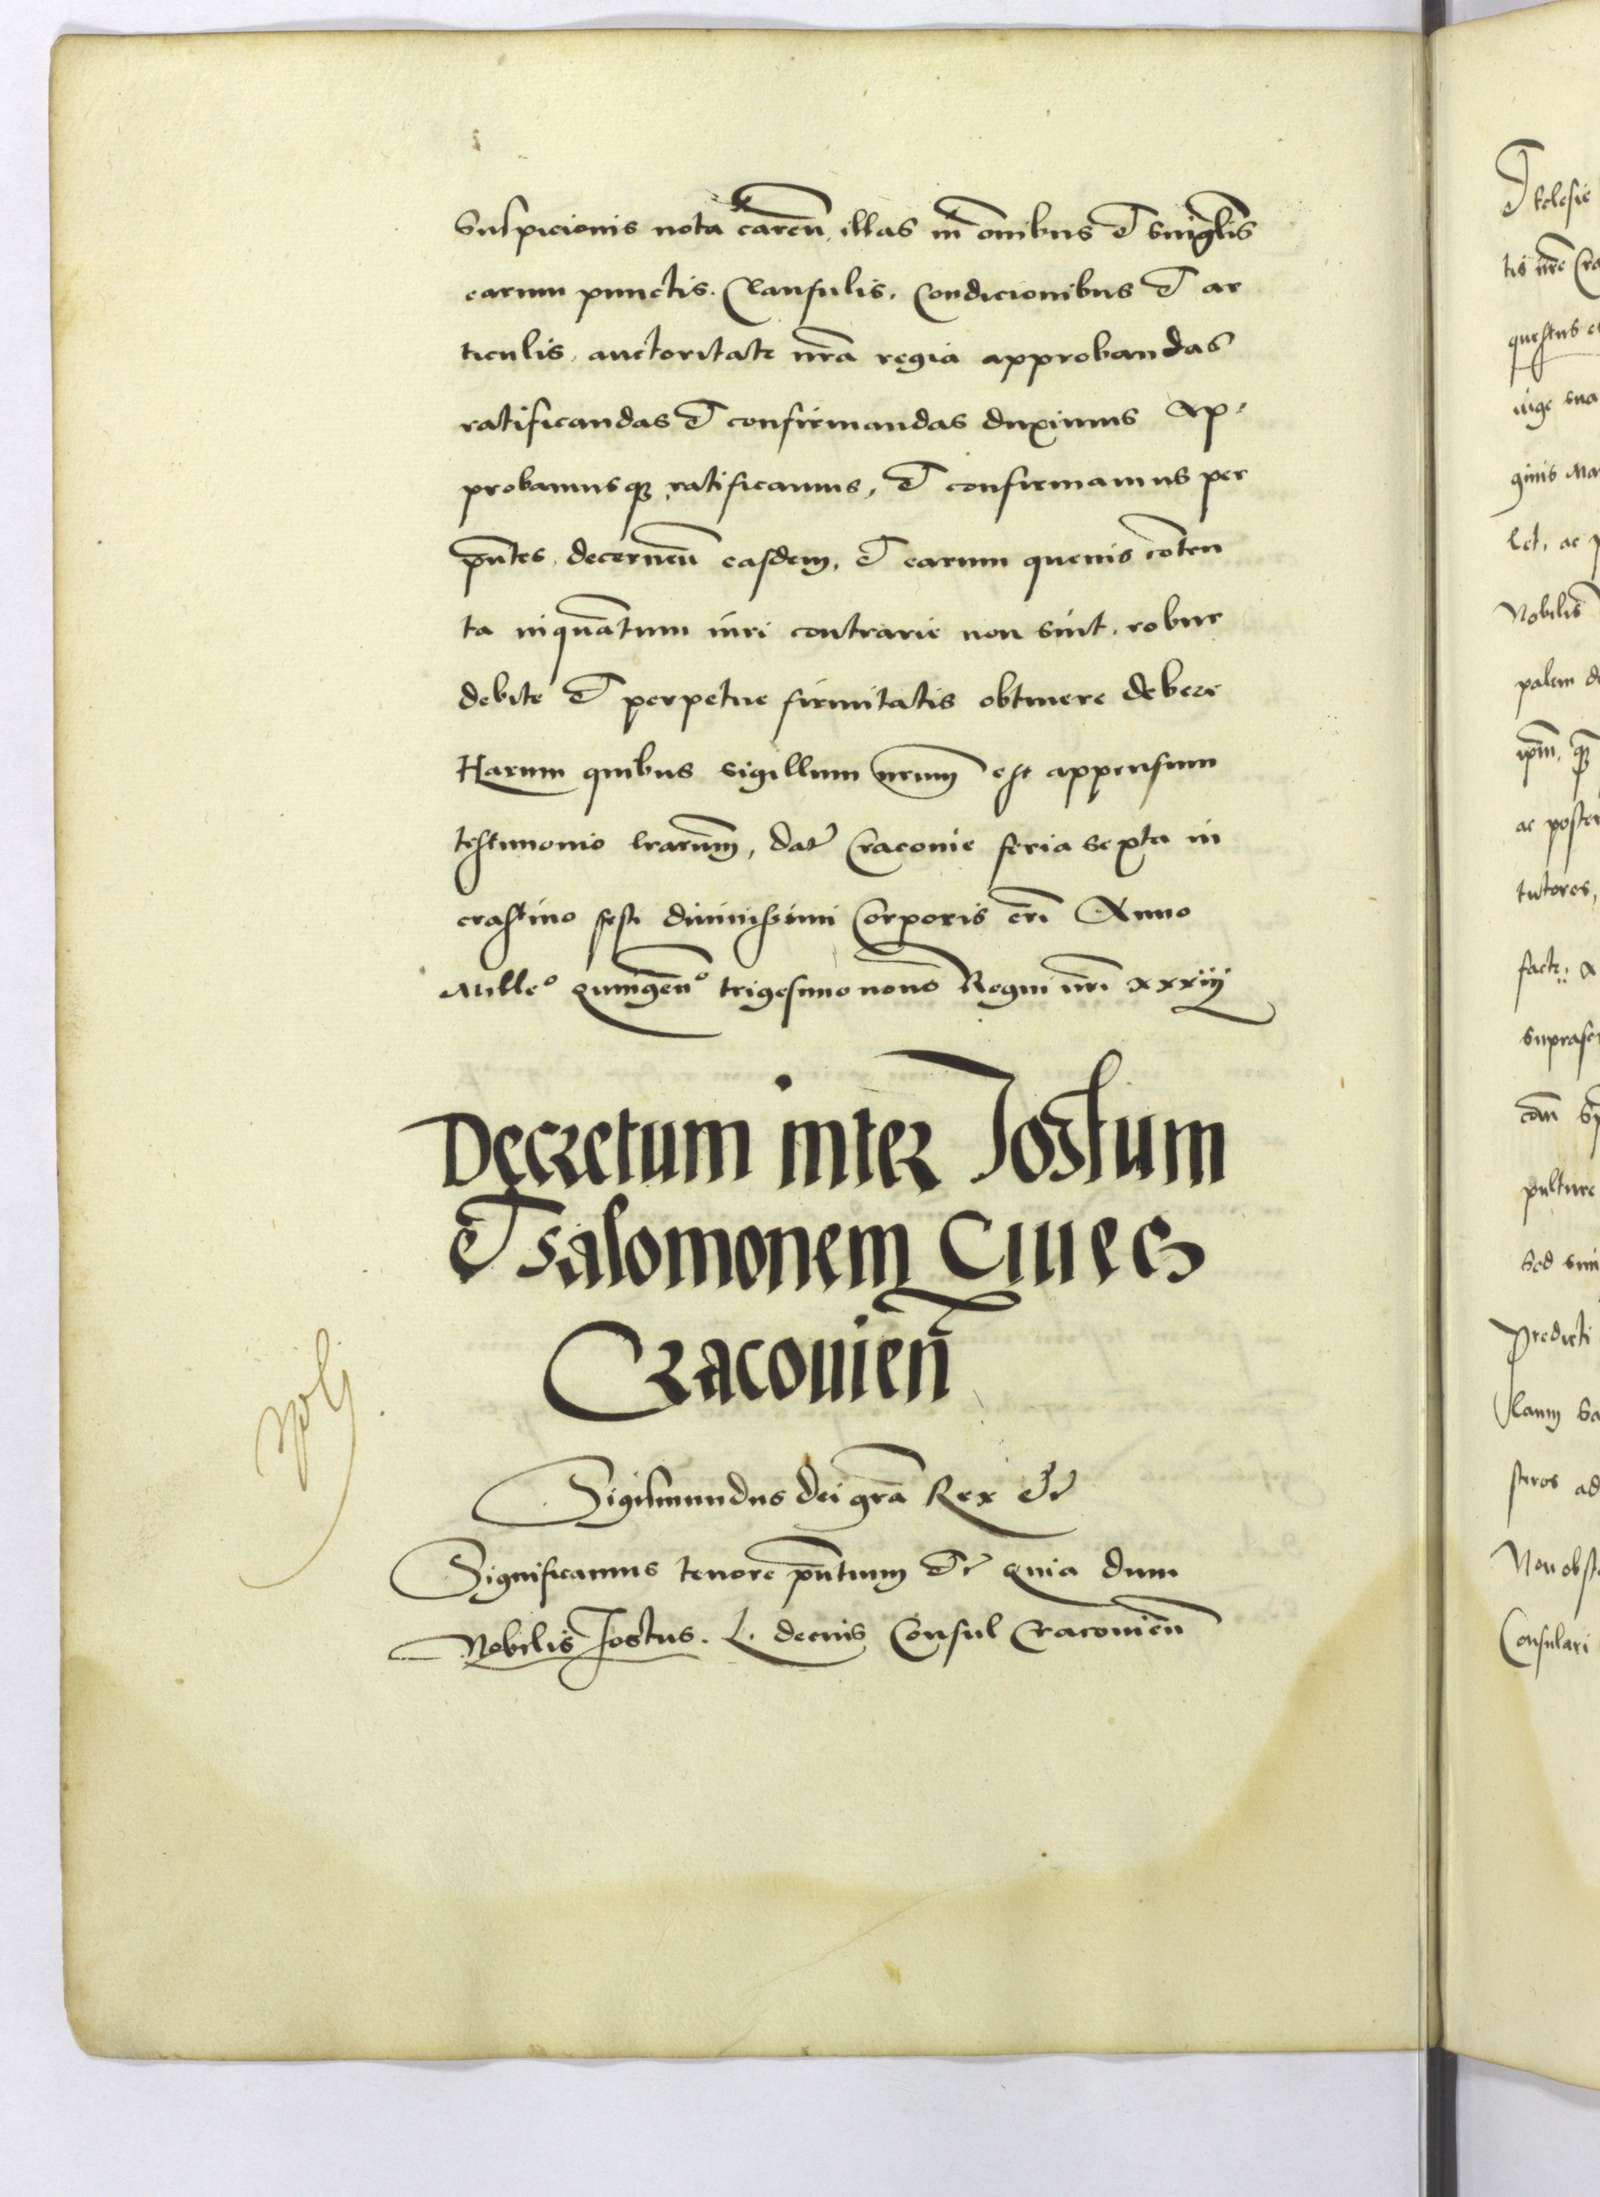 Suspicionis nota careñ illas in om̃ibus et singlis
earum punctis. Clausulis. Condicionibus et ar
ticulis, auctoritate nr̃a regia approbandas
ratificandas et confirmandas duximus Ap⸗
probamusq; ratificamus, et confirmamus per
pñtes, decerneñ easdem, et earum queuis cõten
ta inquãtum iuri contrarie non sint, robur
debite et perpetue firmitatis obtinere debere
Harum quibus sigillum nrum̃ est appensum
testimonio lrarum̃, dat̃ Cracouie feria sexta in
crastino festi diuinissimi Corporis cri̅ Anno
Milleº Quingenº trigesimo nono Regni nri̅ xxxiij
Decretum inter Jostum
et Salomonem Ciues
Cracouieñ
Sigismundus dei grã Rex etc̃
Significamus tenore pñtium etc̃ Quia dum
Nobilis Jostus. L. decius Consul Cracouieñ
Ecclesie
tis nr̃e Cra
questus
iuge sua
ginis Ma
let, ac p
Nobilis
palem d
ipm̃, q;
ac poster
tutores,
facte: A
suprascr
pulture
Sed
Predicti
llam̃ Sa
steros ad
Non obst
Consulari